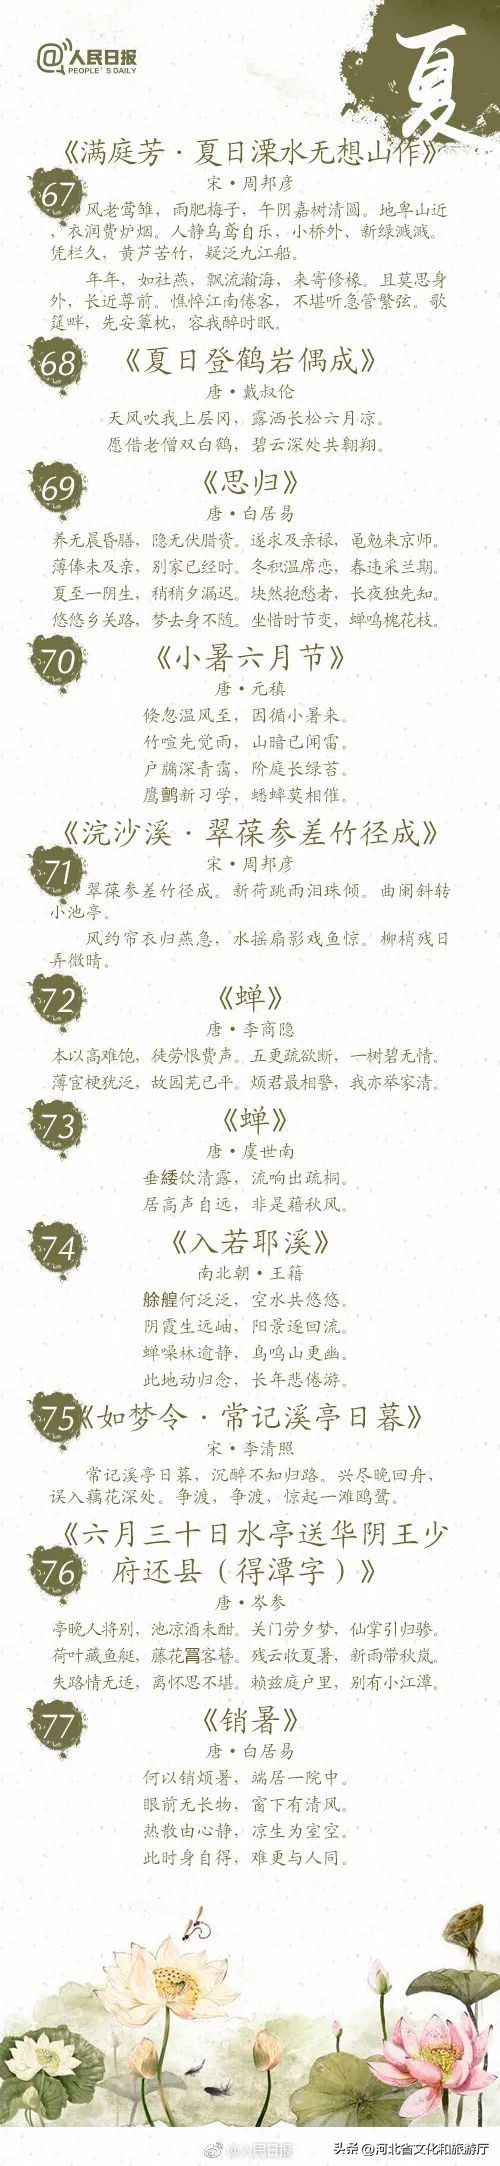 人民日报
PEOPLE'S DAILY
夏
《满庭芳·夏日溧水无想山作》
67
宋·周邦彦
风老莺雏，雨肥梅子，午阴嘉树清圆。地卑山近
，衣润费炉烟。人静乌鸢自乐，小桥外、新绿溅溅。
凭栏久，黄芦苦竹，疑泛九江船。
年年，如社燕，飘流瀚海，来寄修椽。且莫思身
外，长近尊前。憔悴江南倦客，不堪听急管繁弦。歌
筵畔，先安簟枕，容我醉时眠。
68
《夏日登鹤岩偶成》
唐·戴叔伦
天风吹我上层冈，露洒长松六月凉。
愿借老僧双白鹤，碧云深处共翱翔。
69
《思归》
唐·白居易
养无晨昏膳，隐无伏腊资。遂求及亲禄，黾勉来京师。
薄俸未及亲，别家已经时。冬积温席恋，春违采兰期。
夏至一阴生，稍稍夕漏迟。块然抱愁者，长夜独先知。
悠悠乡关路，梦去身不随。坐惜时节变，蝉鸣槐花枝。
70
《小暑六月节》
唐·元稹
倏忽温风至，因循小暑来。
竹喧先觉雨，山暗已闻雷。
户牖深青霭，阶庭长绿苔。
鹰鹯新习学，蟋蟀莫相催。
《浣沙溪·翠葆参差竹径成》
71
宋·周邦彦
翠葆参差竹径成。新荷跳雨泪珠倾。曲阑斜转
小池亭。
风约帘衣归燕急，水摇扇影戏鱼惊。柳梢残日
弄微晴。
72
《蝉》
唐·李商隐
本以高难饱，徒劳恨费声。五更疏欲断，一树碧无情。
薄宦梗犹泛，故园芜已平。烦君最相警，我亦举家清。
73
《蝉》
唐·虞世南
垂緌饮清露，流响出疏桐。
居高声自远，非是藉秋风。
74
《入若耶溪》
南北朝·王籍
艅艎何泛泛，空水共悠悠。
阴霞生远岫，阳景逐回流。
蝉噪林逾静，鸟鸣山更幽。
此地动归念，长年悲倦游。
75
《如梦令·常记溪亭日暮》
宋·李清照
常记溪亭日暮，沉醉不知归路。兴尽晚回舟，
误入藕花深处。争渡，争渡，惊起一滩鸥鹭。
《六月三十日水亭送华阴王少
76
府还县（得潭字）》
唐·岑参
亭晚人将别，池凉酒未酣。关门劳夕梦，仙掌引归骖。
荷叶藏鱼艇，藤花罥客簪。残云收夏暑，新雨带秋岚。
失路情无适，离怀思不堪。赖兹庭户里，别有小江潭。
77
《销暑》
唐·白居易
何以销烦暑，端居一院中。
眼前无长物，窗下有清风。
热散由心静，凉生为室空。
此时身自得，难更与人同。
@人民日报
头条@河北省文化和旅游厅